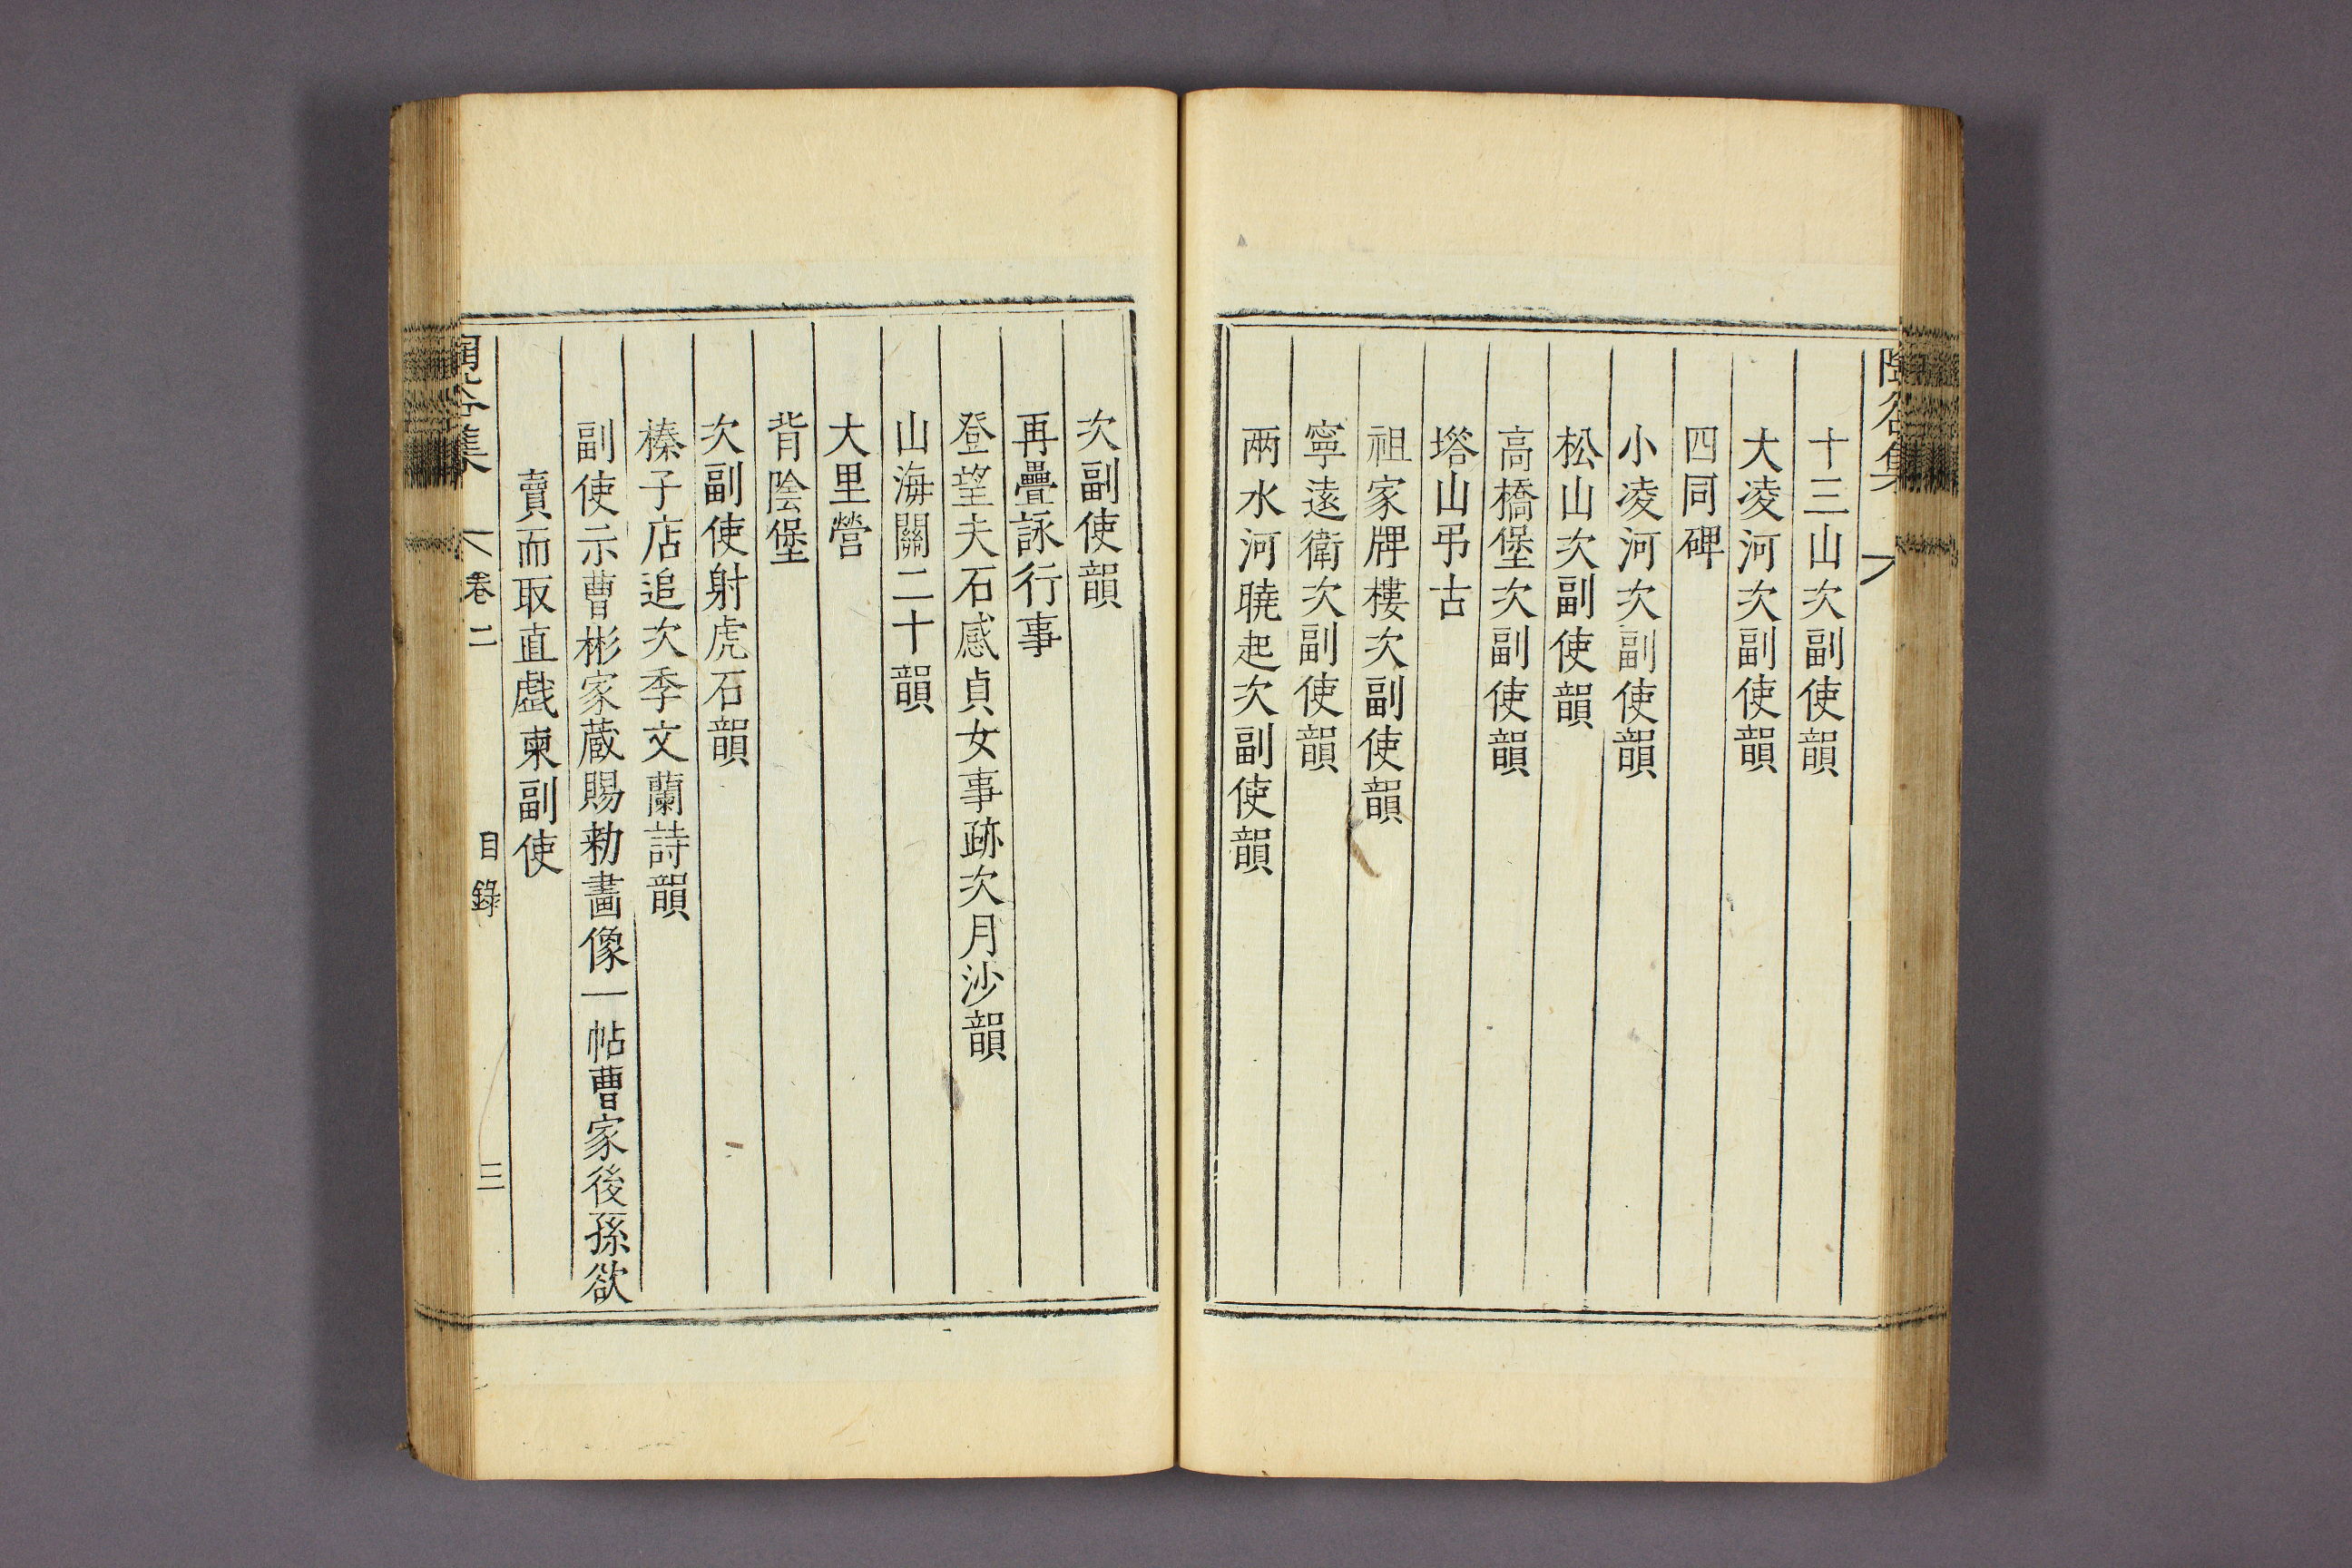 十三山次副使韻
大凌河次副使韻
四同碑
小凌河次副使韻
松山次副使韻
高橋堡次副使韻
塔山弔古
祖家牌樓次副使韻
寧遠衛次副使韻
兩水河曉起次副使韻
次副使韻
再疊詠行事
登望夫石感貞女事跡次月沙韻
山海關二十韻
大里營
背陰堡
次副使射虎石韻
榛子店追次季文蘭詩韻
副使示曹彬家蔵賜勑畵像一帖曹家後孫欲
賣而取直戲柬副使
谷集 卷二 目錄 三